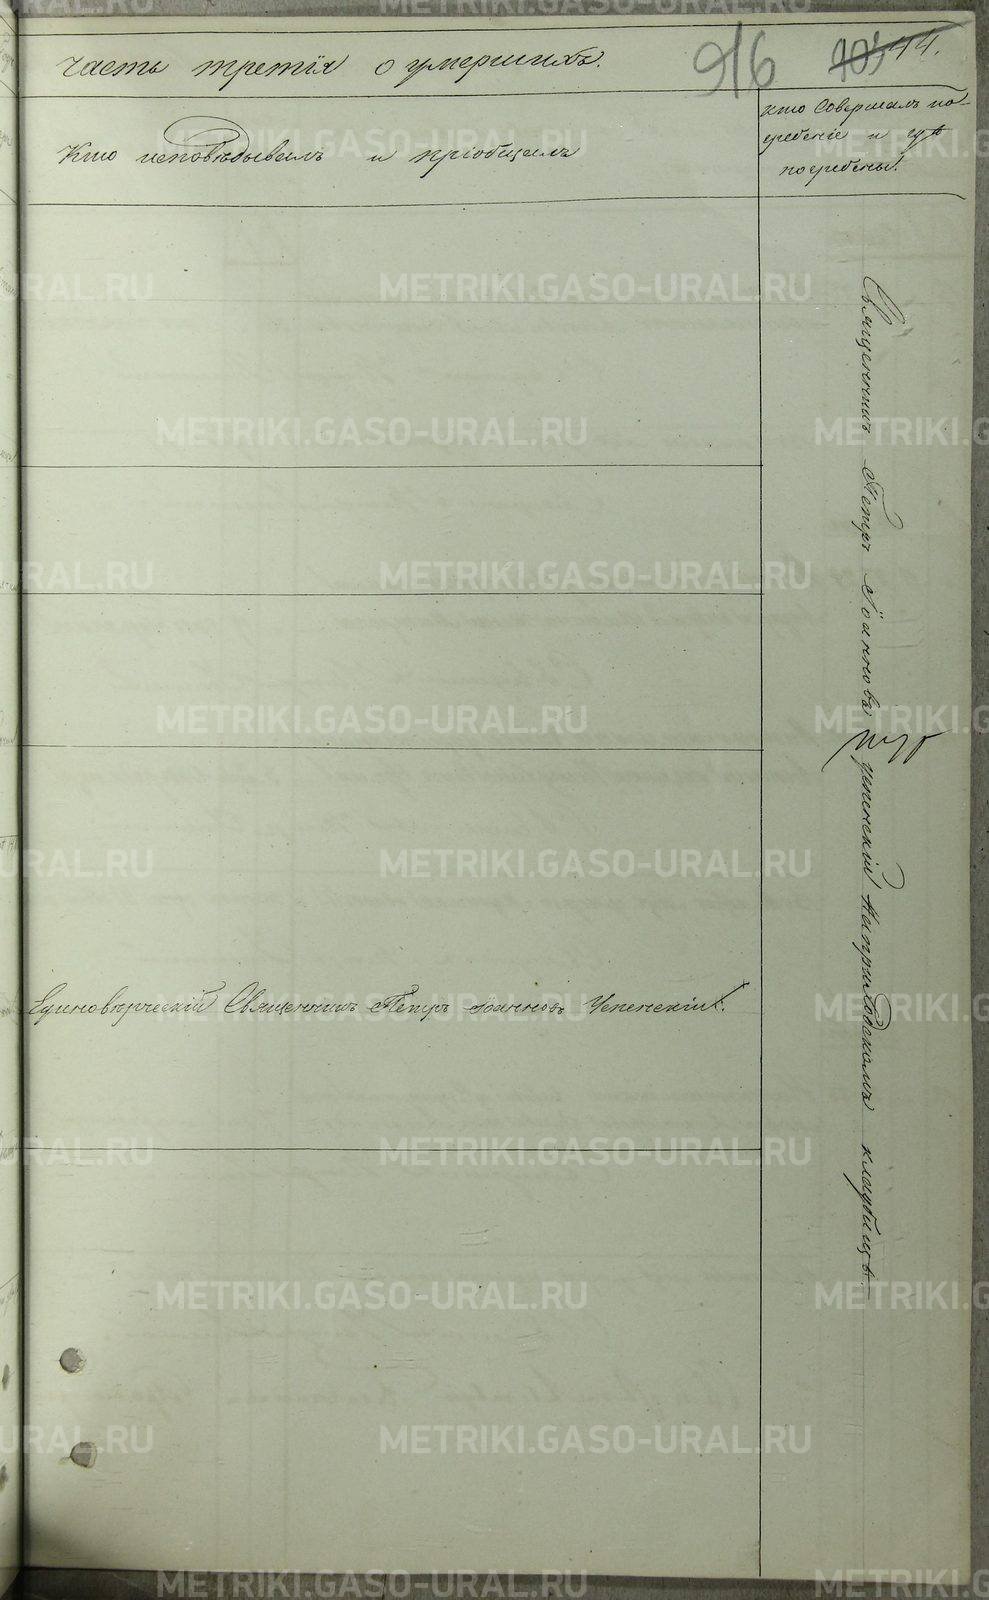 часть третія о умершихъ.
916
105
44.
Кто исповѣдывалъ и пріобщалъ
кто Совершалъ по-
гребеніе и гдѣ
погребены.
Священникъ Петръ Іоанновъ Успенскій На приходскомъ кладбищѣ
Единовѣрческій Священникъ Петръ Іоанновъ Успенскій.
METRIKI.GASO-URAL.RU